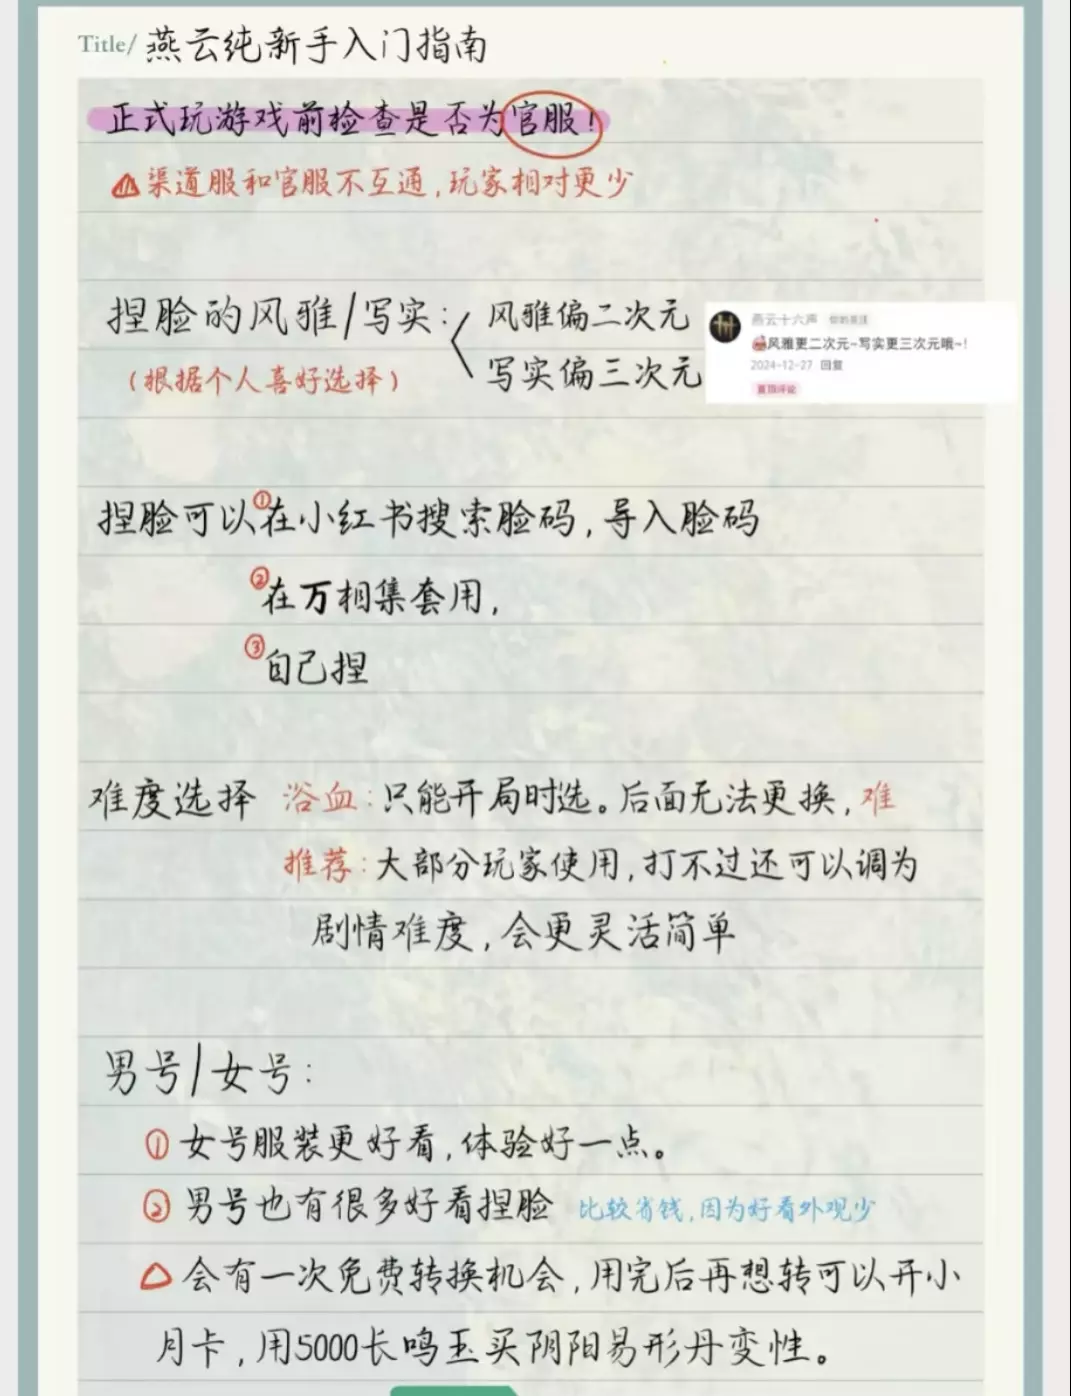 Title/ 燕云纯新手入门指南
正式玩游戏前检查是否为官服!
渠道服和官服不互通,玩家相对更少
捏脸的风雅/写实: 风雅偏二次元
写实偏三次元
(根据个人喜好选择)
燕云十六声 你的关注
风雅更二次元~写实更三次元哦~!
2024-12-27 回复
置顶评论
捏脸可以①在小红书搜索脸码,导入脸码
②在万相集套用,
③自己捏
难度选择 浴血:只能开局时选。后面无法更换,难
推荐:大部分玩家使用,打不过还可以调为
剧情难度,会更灵活简单
男号/女号:
① 女号服装更好看,体验好一点。
② 男号也有很多好看捏脸 比较省钱,因为好看外观少
△ 会有一次免费转换机会,用完后再想转可以开小
月卡,用5000长鸣玉买阴阳易形丹变性。